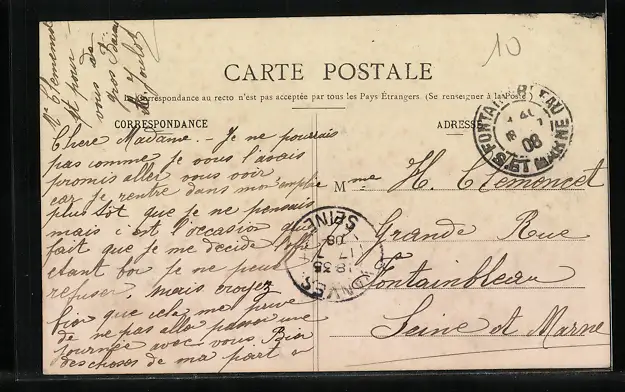 10
CARTE POSTALE
La Correspondance au recto n'est pas acceptée par tous les Pays Étrangers (Se renseigner à la Poste)
CORRESPONDANCE
ADRESSE
Chere Madame. - Je ne pourrais
pas comme je vous l'avais
promis aller vous voir
car je rentre dans mon emploie
plus tôt que je ne pensais
mais c'est l'occasion qui
fait que je me decide
etant bon je ne peux
refuser, mais croyez
bien que cela me prive
de ne pas aller passer une
journée avec vous. Bien
des choses de ma part a
Mr Clemencet
et pour
vous de
gros Baisers
Mme H. Clemencet
Grande Rue
Fontainbleau
Seine et Marne
FONTAINEBLEAU
08
SNE ET MARNE
SEINE
08
17
18 35